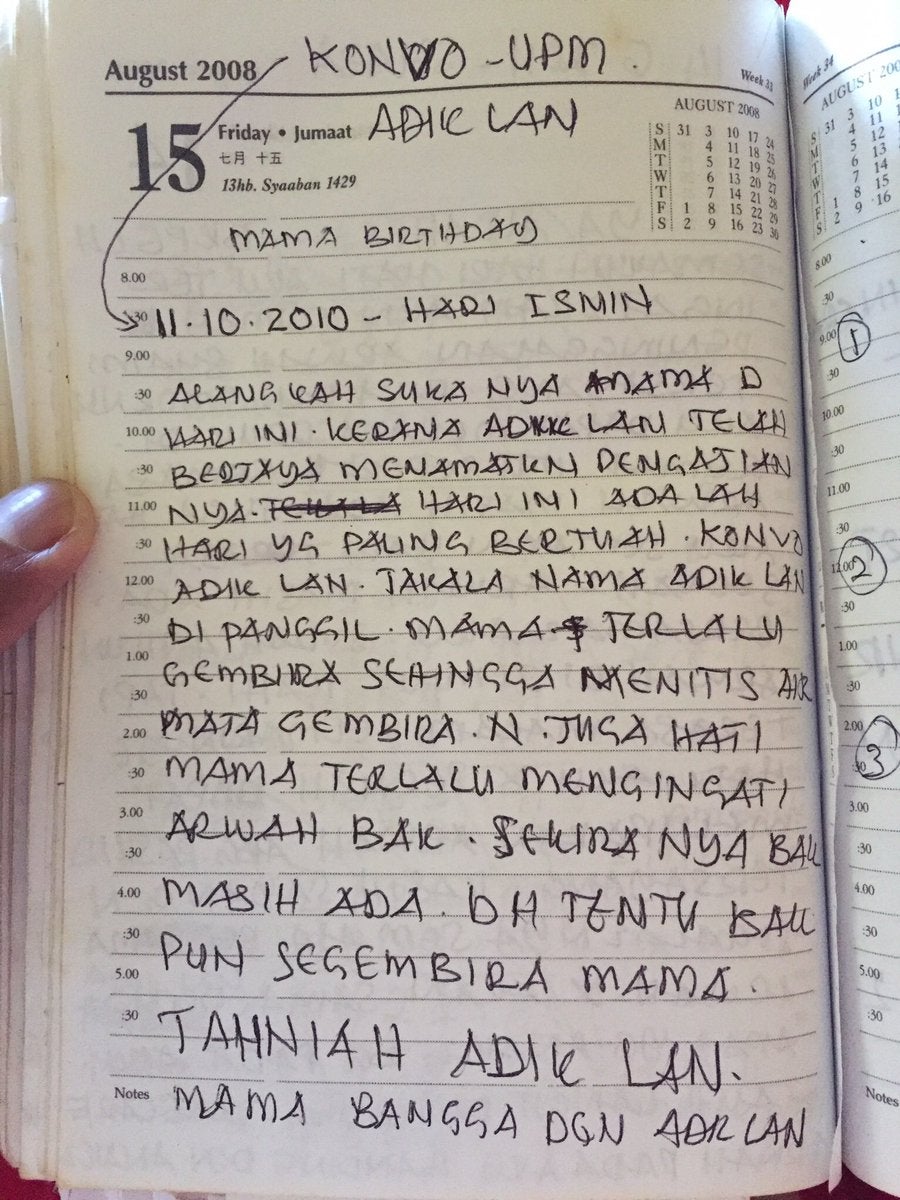 August 2008 KONVO - UPM.
Week 33
15 Friday • Jumaat ADIK LAN
七月 十五
13hb. Syaaban 1429
AUGUST 2008
S 31 3 10 17 24
M 4 11 18 25
T 5 12 19 26
W 6 13 20 27
T 7 14 21 28
F 1 8 15 22 29
S 2 9 16 23 30
MAMA BIRTHDAY
8.00
:30 11.10.2010 - HARI ISNIN
9.00
:30 ALANGKAH SUKA NYA MAMA D
10.00 HARI INI. KERANA ADIK LAN TELAH
:30 BERJAYA MENAMATKN PENGAJIAN
11.00 NYA. HARI INI ADA LAH
:30 HARI YG PALING BERTUAH. KONVO
12.00 ADIK LAN. TAKALA NAMA ADIK LAN
:30 DI PANGGIL. MAMA TERLALU
1.00 GEMBIRA SEHINGGA MENITIS AIR
:30
2.00 MATA GEMBIRA. N. JUGA HATI
:30 MAMA TERLALU MENGINGATI
3.00 ARWAH BAK. SEKIRA NYA BAK
:30
4.00 MASIH ADA. DH TENTU BAK
:30 PUN SEGEMBIRA MAMA.
5.00
:30 TAHNIAH ADIK LAN.
Notes MAMA BANGGA DGN ADIK LAN
Week 34
AUGUST 200
31 3 10
4 11
5 12
6 13
7 14
1 8 15
2 9 16
8.00
:30
9.00 1
:30
10.00
:30
11.00
:30
12.00 2
:30
1.00
:30
2.00
:30 3
3.00
:30
4.00
:30
5.00
:30
Notes